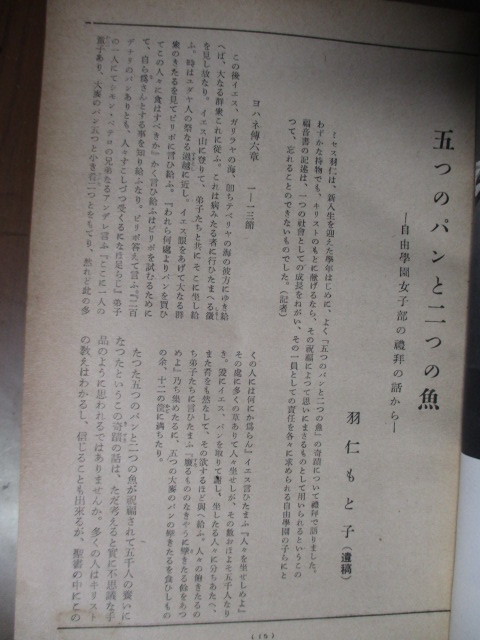 五つのパンと二つの魚
―自由學園女子部の禮拜の話から―
羽仁もと子（遺稿）
ミセス羽仁は、新入生を迎えた學年はじめに、よく『五つのパンと二つの魚』の奇蹟について禮拜で語りました。
わずかな持物でも、キリストのもとに献げるなら、その祝福によつて思いにまさるものとして用いられるというこの
福音書の記述は、一つの社會としての成長をねがい、その一員としての責任を各々に求められる自由學園の子らにと
つて、忘れることのできないものでした。（記者）
ヨハネ傳六章　一―一三節
この後イエス、ガリラヤの海、即ちテベリヤの海の彼方にゆき給
へば、大なる群衆これに從ふ、これは病みたる者に行ひたまへる徴
を見し故なり。イエス山に登りて、弟子たちと共にそこに坐し給
ふ。時はユダヤ人の祭なる過越に近し。イエス眼をあげて大なる群
衆のきたるを見てピリポに言ひ給ふ。『われら何處よりパンを買ひ
てこの人々に食はすべきか』かく言ひ給ふはピリポを試むるために
て、自ら爲さんとする事を知り給ふなり。ピリポ答へて言ふ『二百
デナリのパンありとも、人々すこしづつ受くるになほ足らじ』弟子
の一人にてシモン・ペテロの兄弟なるアンデレ言ふ『ここに一人の
童子あり、大麥のパン五つと小き肴二つとをもてり、然れど此の多
くの人には何にか爲らん』イエス言ひたまふ『人々を坐せしめよ』
その處に多くの草ありて人々坐せしが、その數おほよそ五千人なり
き。爰にイエス、パンを取りて謝し、坐したる人々に分ちあたへ、
また肴をも然なして、その欲するほど與へ給ふ。人々の飽きたるの
ち弟子たちに言ひたまふ『擘きたる餘をあつ
めよ』乃ち集めたるに、五つの大麥のパンの擘きたるを食ひしもの
の余、十二の筐に滿ちたり。
たつた五つのパンと二つの魚が祝福されて五千人の養いに
なつたというこの奇蹟の話は、ただ考えると實に不思議な手
品のように思われるではありませんか。多くの人はキリスト
の敎えはわかるし、信じることも出來るが、聖書の中にこの
(15)